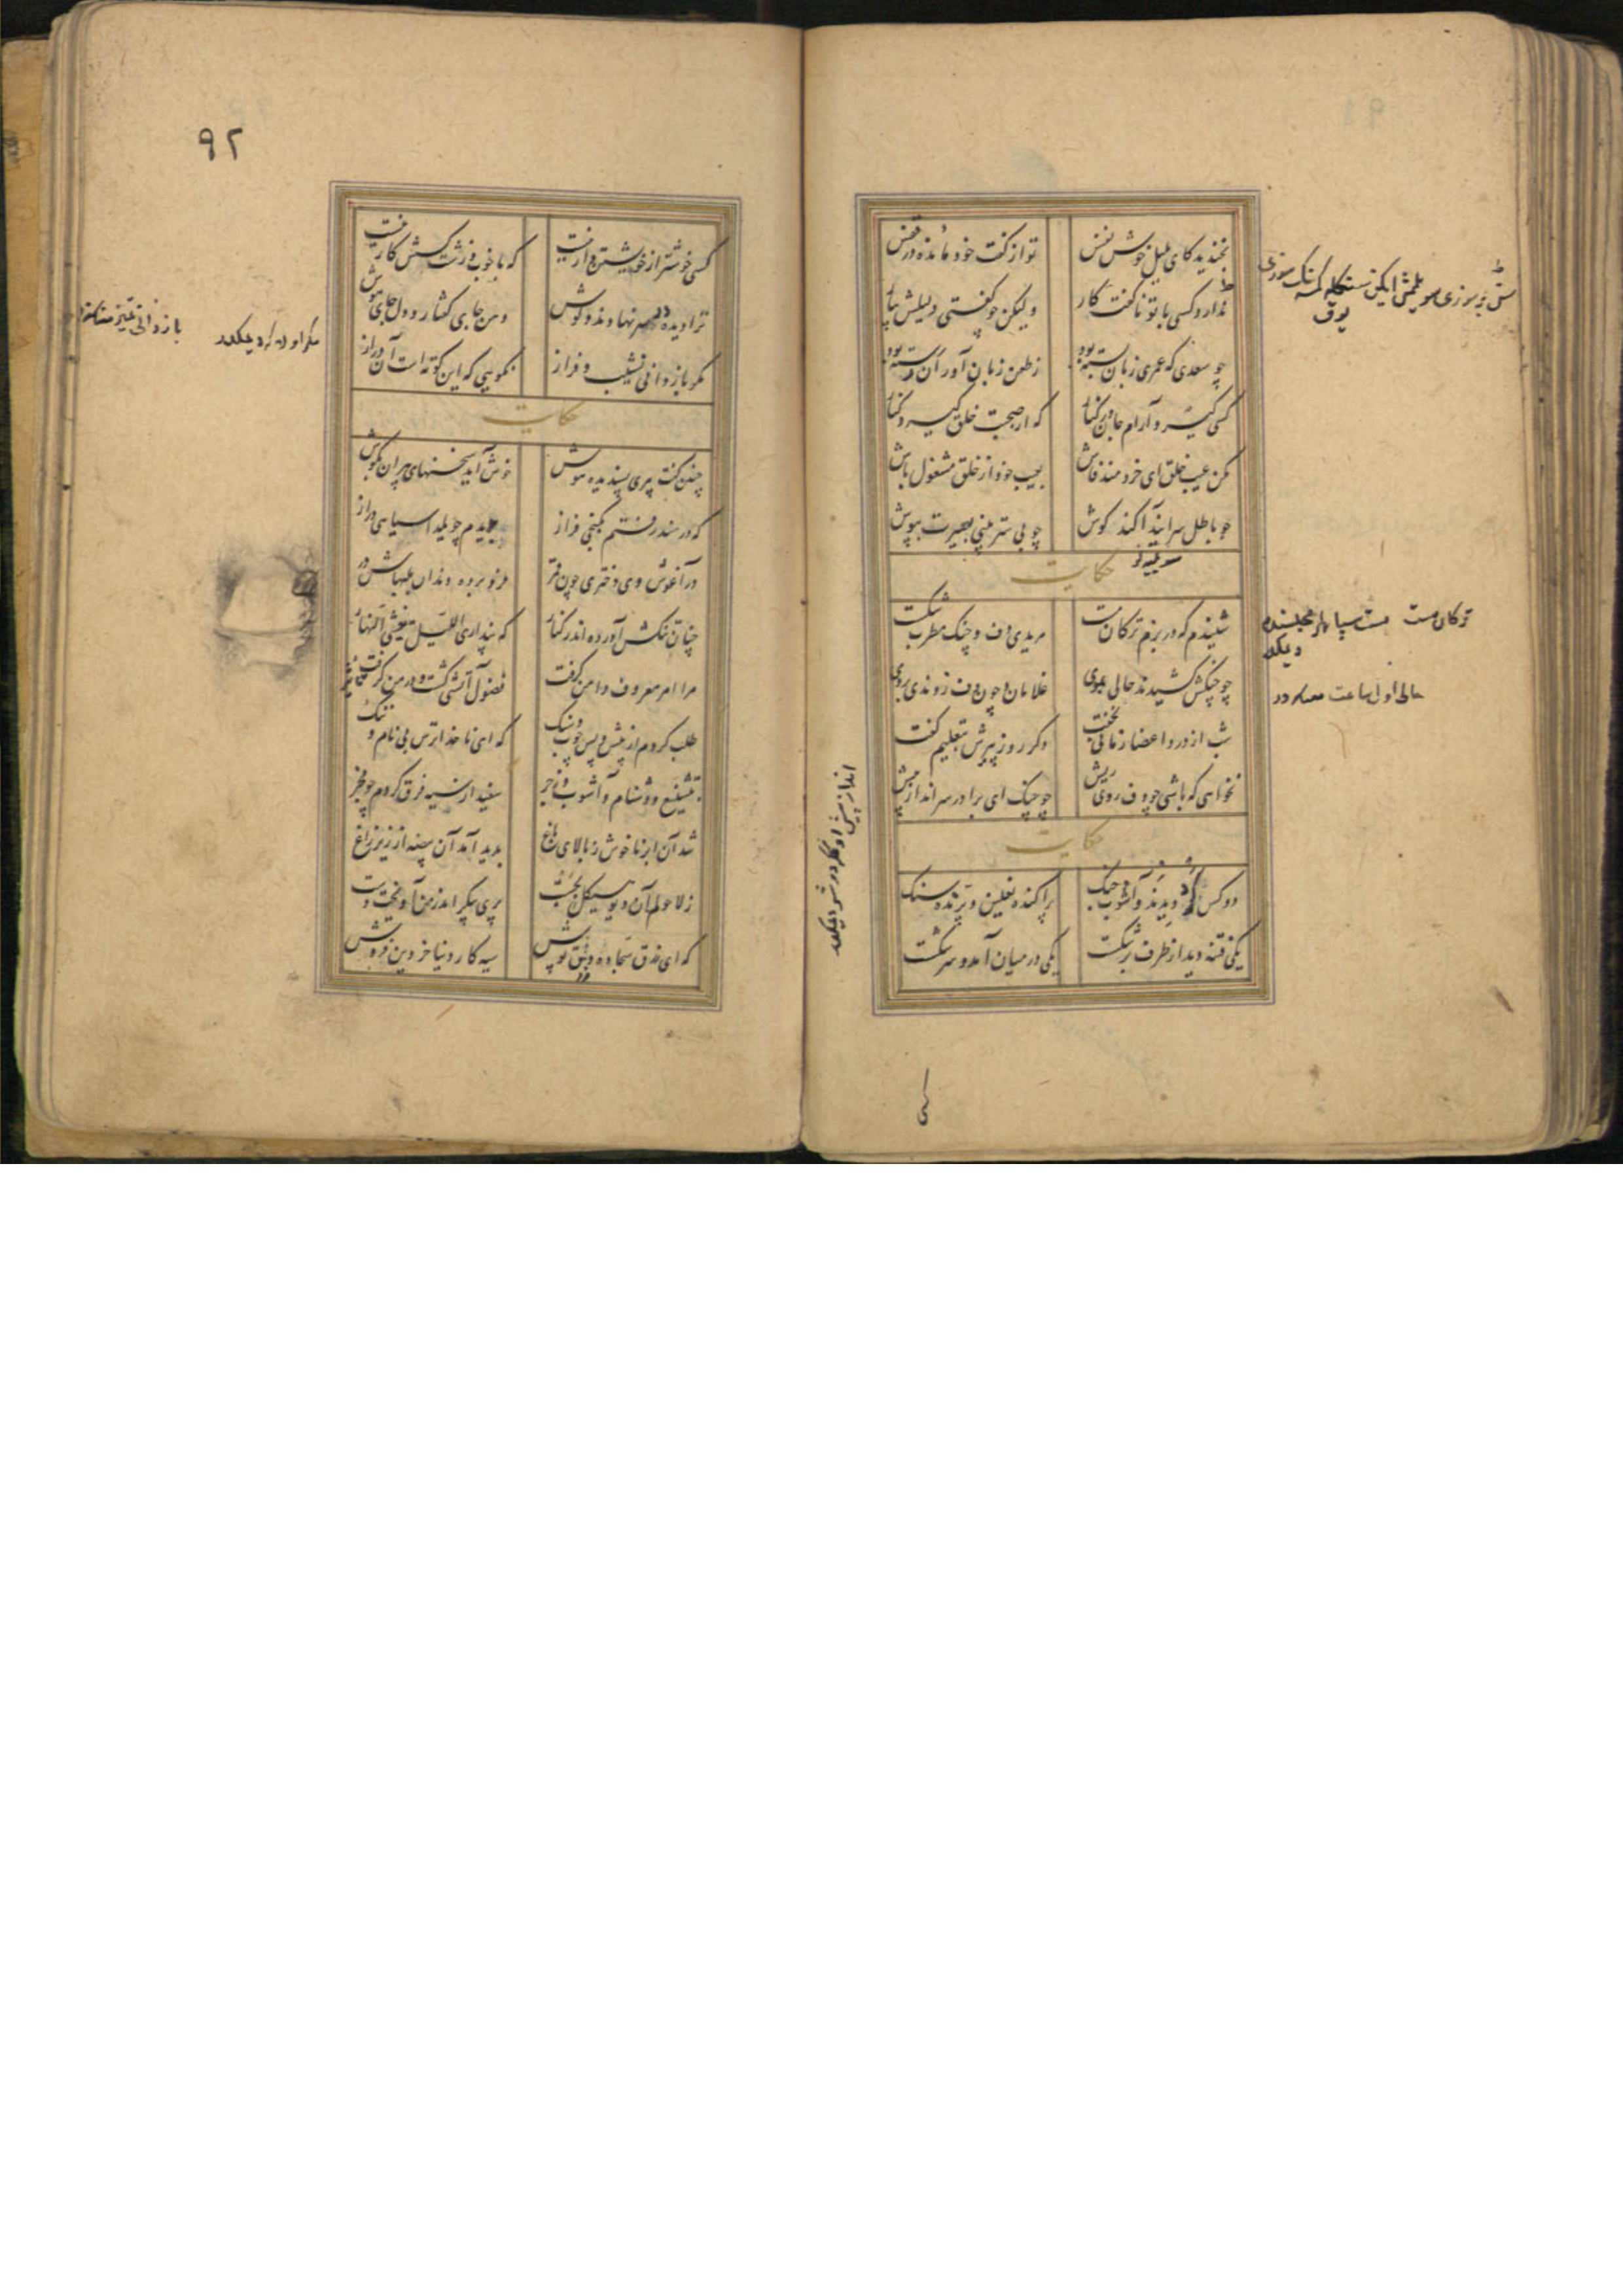 بخندید کای بلبل خوش نفس
تو از گفت خود مانده در قفس
ندارد کسی با تو ناگفته کار
ولیکن چو گفتی دلیلش بیار
چو سعدی که عمری زبان بسته بود
ز طعن زبان آوران رسته بود
کسی گیرد آرام جان در کنار
که از صحبت خلق گیرد کنار
مکن عیب خلق ای خردمند فاش
بعیب خود از خلق مشغول باش
چو باطل سرایند آکند گوش
چو بی ستر بینی بصیرت بپوش
حکایت
شنیدم که در بزم ترکان مست
مریدی دف و چنگ مطرب شکست
چو چنگش کشیدند حالی بموی
غلامان و چون دف زدندی بروی
شب از درد اعضا زمانی نخفت
دگر روز پیرش بتعلیم گفت
نخواهی که باشی چو دف روی ریش
چو چنگ ای برادر سر انداز پیش
حکایت
دو کس گرد دیدند و آشوب و جنگ
پراکنده نعلین و پرنده سنگ
یکی فتنه دید از طرف بر شکست
یکی در میان آمد و سر شکست
ترکان مست مست سپاهلر مجلسنده دیمکدر
کسی
۹۲
کسی خوشتر از خویشتن دار نیست
که با خوب و زشت کسش کار نیست
ترا دیده در سر نهادند و گوش
دهن جای گفتار و دل جای هوش
مگر باز دانی نشیب و فراز
نگویی که این کوته است آن دراز
حکایت
چنین گفت پیری پسندیده هوش
خوش آید سخنهای پیران بگوش
که در هند رفتم بکنجی فراز
بدیدم چو یلدا سیاهی دراز
در آغوش وی دختری چون قمر
فرو برده دندان بلبهاش در
چنان تنگش آورده اندر کنار
که پنداری اللیل یغشی النهار
مرا امر معروف دامن گرفت
فضول آتشی گشت و در من گرفت
طلب کردم از پیش و پس چوب و سنگ
که ای ناخدا ترس بی نام و ننگ
بتشنیع و دشنام و آشوب و زجر
سفید از سیه فرق کردم چو فجر
شد آن ابر ناخوش ز بالای باغ
پدید آمد آن بیضه از زیر زاغ
ز لا حولم آن دیو هیکل بجست
پری پیکر اندر من آویخت دست
که ای زرق سجاده دلق پوش
سیه کار دنیا خر دین فروش